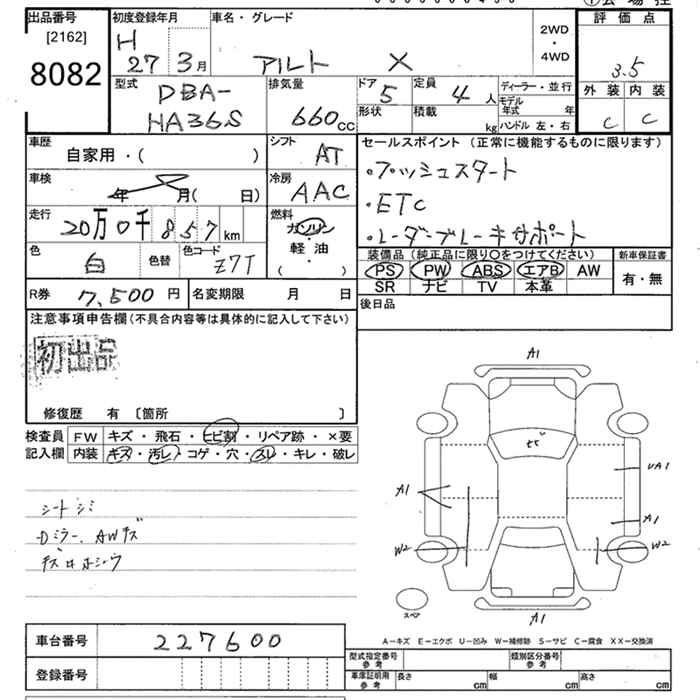 出品番号 初度登録年月 車名・グレード 2WD・4WD 評価点
[2162]
8082
H
27 3月 アルト X 3.5
型式 排気量 ドア 定員 ディーラー・並行 外装 内装
DBA-
HA36S 660cc 5 4人 C C
形状 積載 kg モデル年式 年
ハンドル 左・右
車歴 シフト セールスポイント (正常に機能するものに限ります)
自家用・( ) AT ・プッシュスタート
車検 年 月( 日) 冷房 AAC ・ETC
走行 20万0千857km 燃料 ガソリン・軽油 ( ) ・レーダーブレーキサポート
色 白 色替 色コード Z7T
装備品 (純正品に限り○をつけてください) 新車保証書
PS PW ABS エアB AW 有・無
SR ナビ TV 本革
R券 7,500円 名変期限 月 日 後日品
注意事項申告欄(不具合内容等は具体的に記入して下さい)
初出品
修復歴 有 〔箇所 〕
検査員記入欄 FW キズ・飛石・ヒビ割・リペア跡・×要
内装 キズ・汚レ・コゲ・穴・スレ・キレ・破レ
シートシミ
Dミラー、AWキズ
A1
ヒビ
A1
UA1
A1
W2
W2
スペア
A1
A-キズ E-エクボ U-凹み W-補修跡 S-サビ C-腐食 XX-交換済
車台番号 227600
登録番号
型式指定番号 参考 類別区分番号 参考
車庫証明用 参考 長さ cm 幅 cm 高さ cm